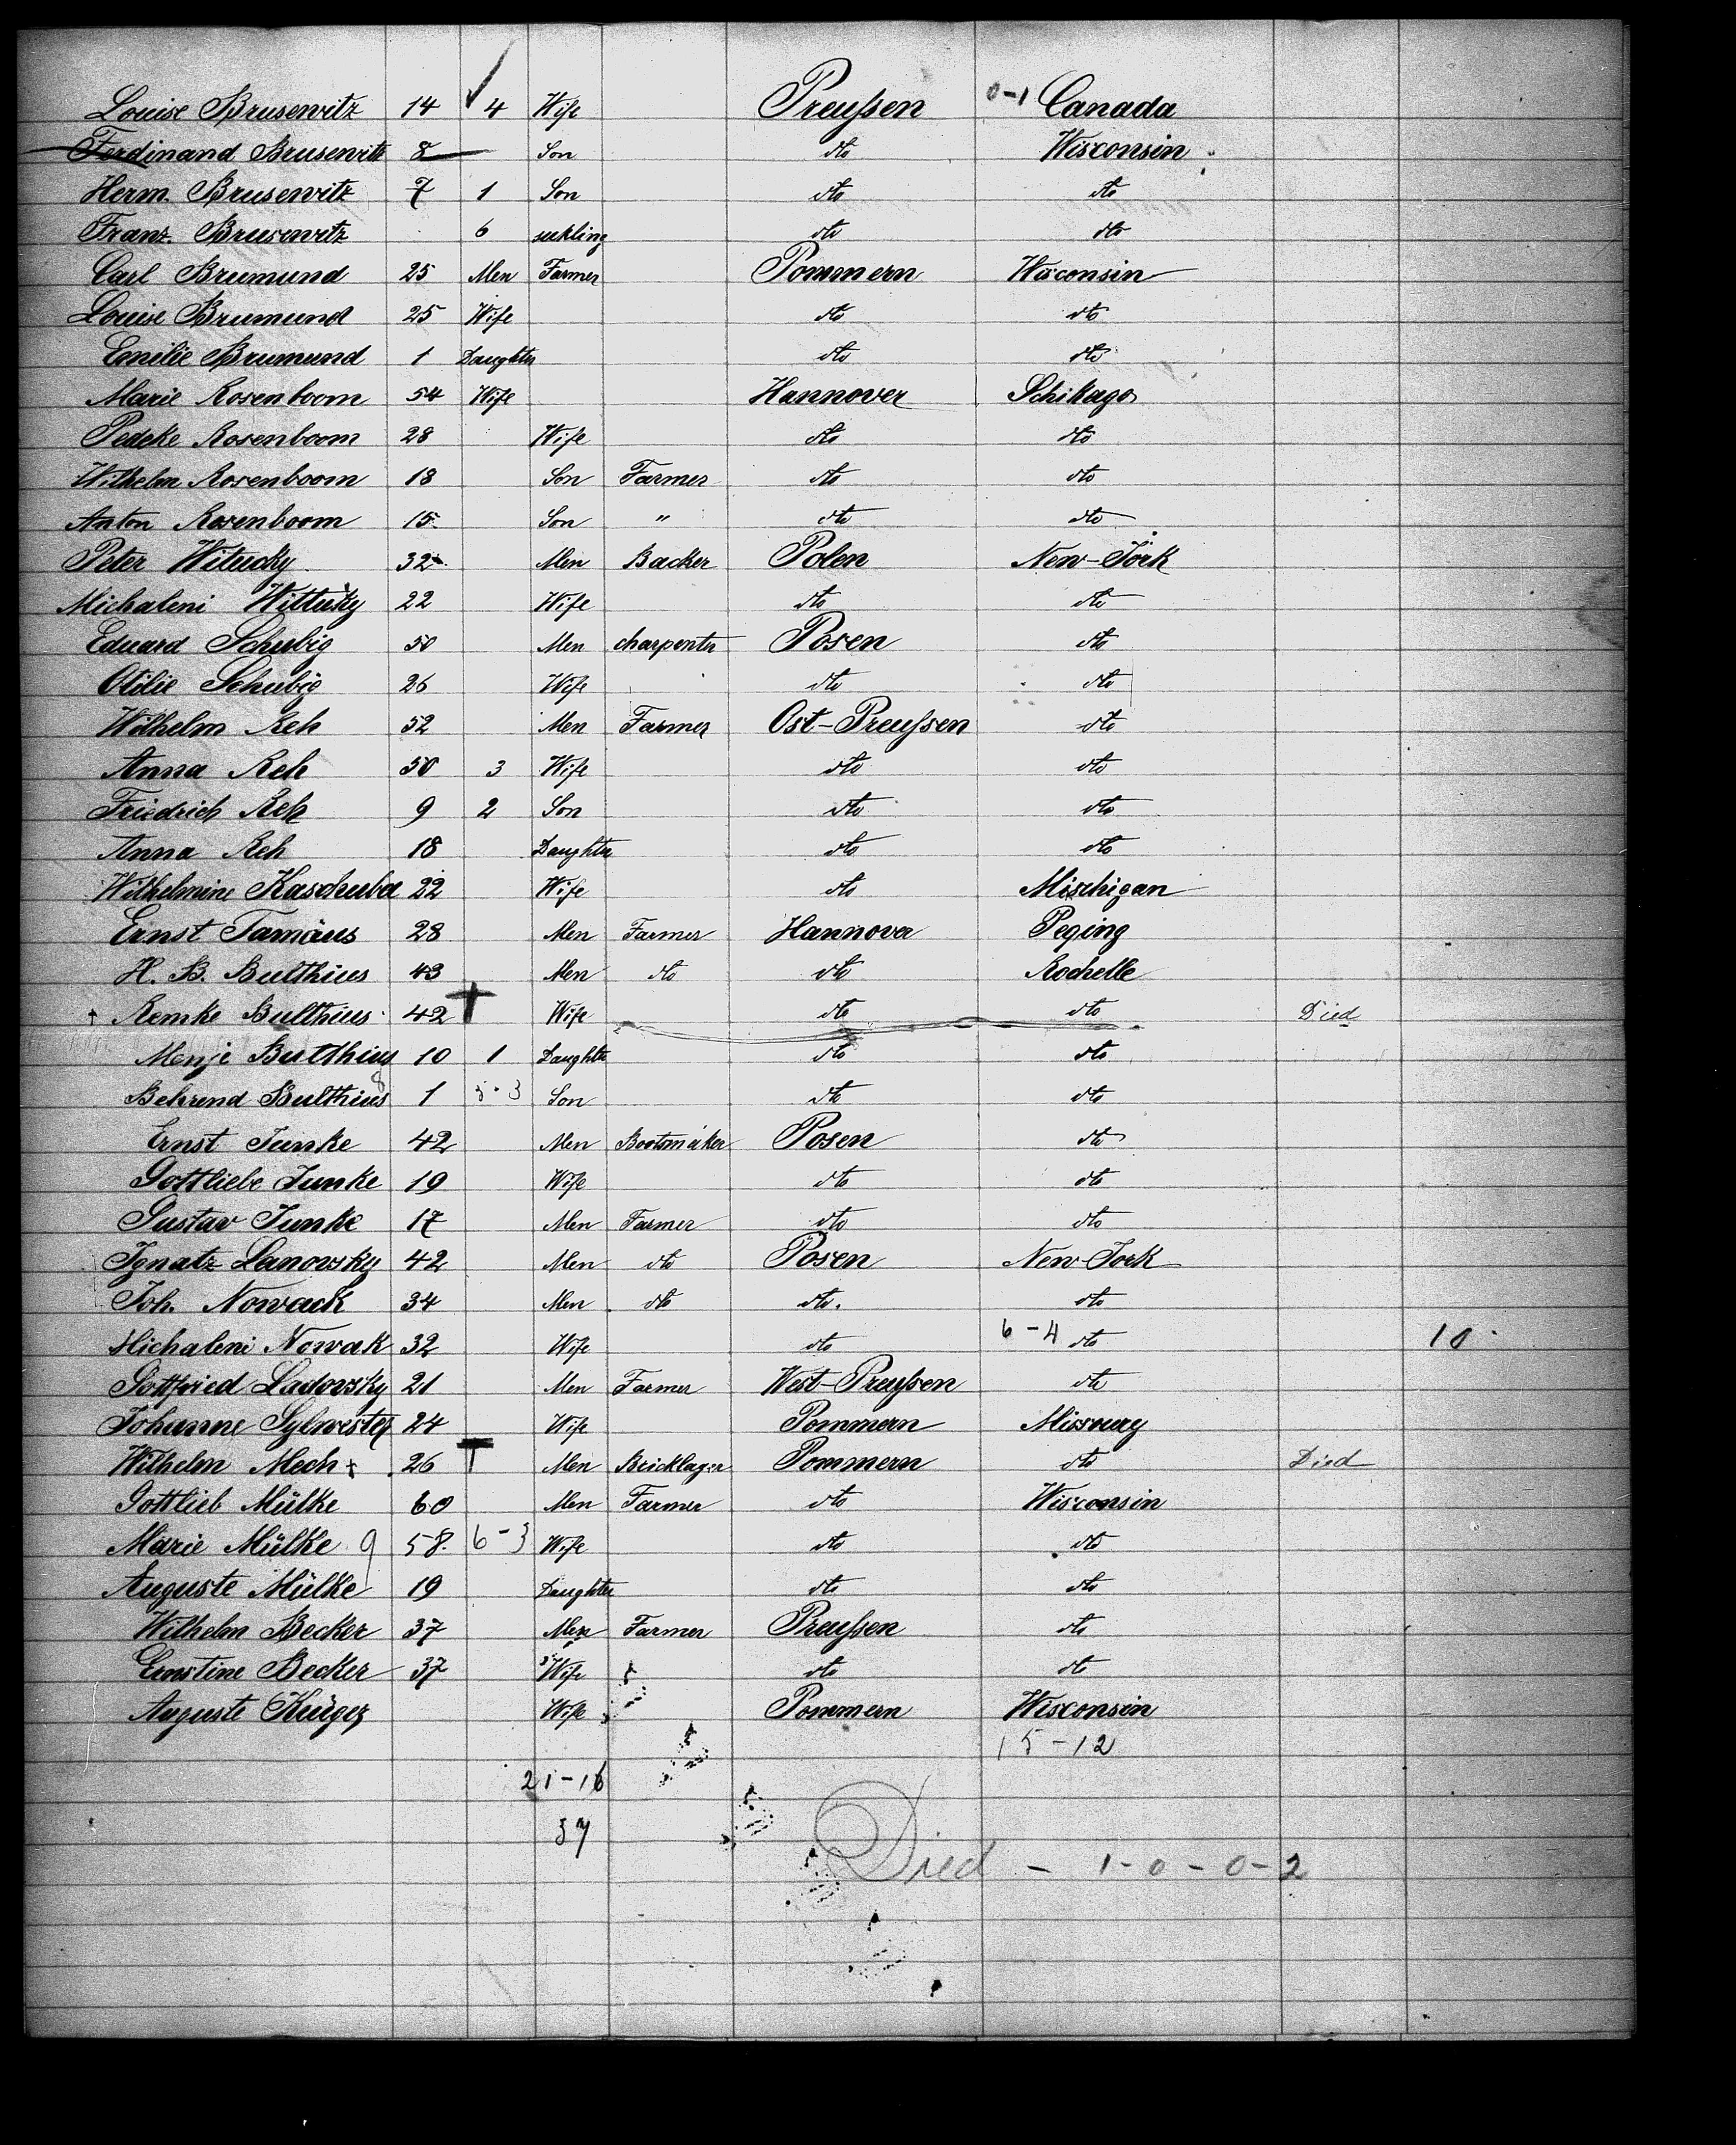 Louise Brusewitz 14 4 Wife Preußen 0-1 Canada
Ferdinand Brusewitz 8 Son dto Wisconsin
Herm. Brusewitz 7 1 Son dto dto
Franz. Brusewitz 6 suckling dto dto
Carl Brumund 25 Men Farmer Pommern Wisconsin
Louise Brumund 25 Wife dto dto
Emilie Brumund 1 Daughter dto dto
Marie Rosenboom 54 Wife Hannover Schikago
Pedeke Rosenboom 28 Wife dto dto
Wilhelm Rosenboom 18 Son Farmer dto dto
Anton Rosenboom 15 Son " dto dto
Peter Witucky 32 Men Backer Polen New-Jork
Michaleni Wittuky 22 Wife dto dto
Eduard Schubig 50 Men charpenter Posen dto
Otilie Schubig 26 Wife dto dto
Wilhelm Reh 52 Men Farmer Ost-Preußen dto
Anna Reh 50 3 Wife dto dto
Friedrich Reh 9 2 Son dto dto
Anna Reh 18 Daughter dto dto
Wilhelmine Kaschuba 22 Wife dto Mischigan
Ernst Tamäus 28 Men Farmer Hannover Peging
H. B. Bulthius 43 Men dto dto Rochelle
† Remke Bulthius 42 † Wife dto dto Died
Menje Bulthius 10 1 Daughter dto dto
Behrend Bulthius 8 1 5-3 Son dto dto
Ernst Junke 42 Men Bootsmaker Posen dto
Gottliebe Junke 19 Wife dto dto
Gustav Junke 17 Men Farmer dto dto
Ignatz Lanowsky 42 Men dto Posen New Jork
Joh. Nowack 34 Men dto dto. dto
Michaleni Nowak 32 Wife dto 6-4 dto 10
Gottfried Ladowsky 21 Men Farmer West-Preußen dto
Johanne Sylwester 24 Wife Pommern Missoury
Wilhelm Mech † 26 † Men Bricklager Pommern dto Died
Gottlieb Mülke 60 Men Farmer dto Wisconsin
Marie Mülke 9 58 6-3 Wife dto dto
Auguste Mülke 19 Daughter dto dto
Wilhelm Becker 37 Men Farmer Preußen dto
Ernstine Becker 37 Wife dto dto
Auguste Krüger Wife Pommern Wisconsin
15-12
21-16
37
Died - 1-0-0-2